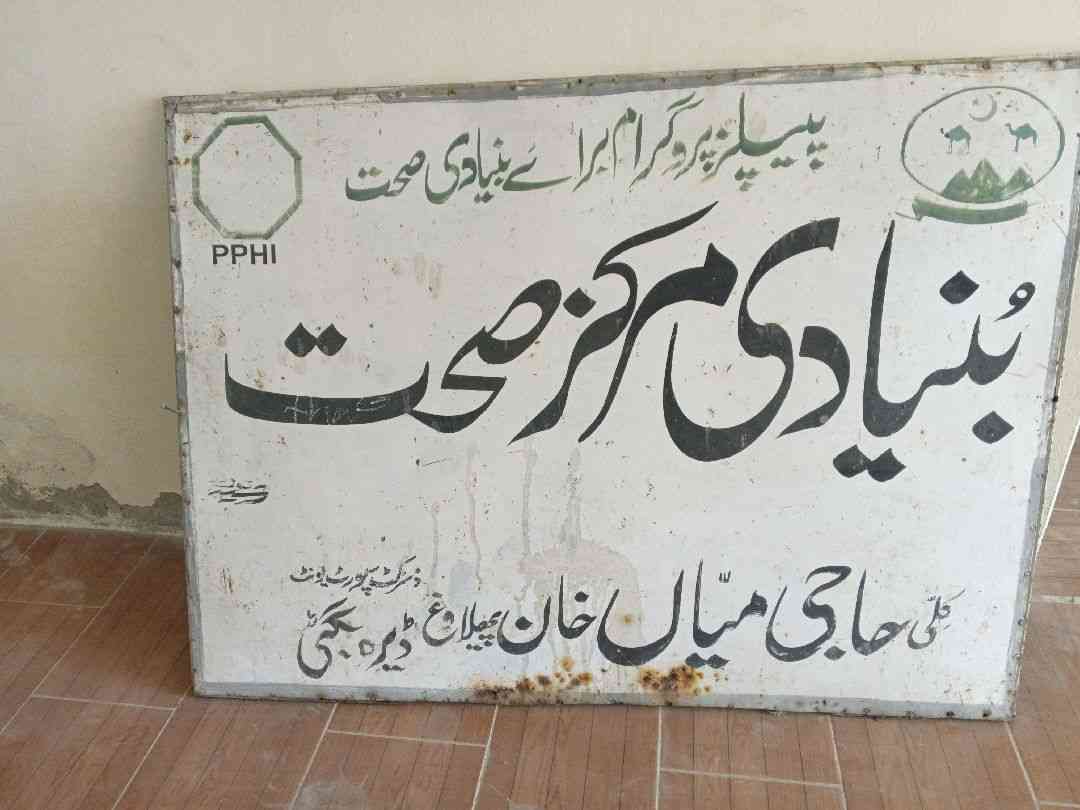 پیپلز پروگرام برائے بنیادی صحت
PPHI
بُنیادی مرکز صحت
کلّی حاجی میّاں خان پھلاوغ
ڈسٹرکٹ سپورٹ یونٹ
ڈیرہ بگٹی